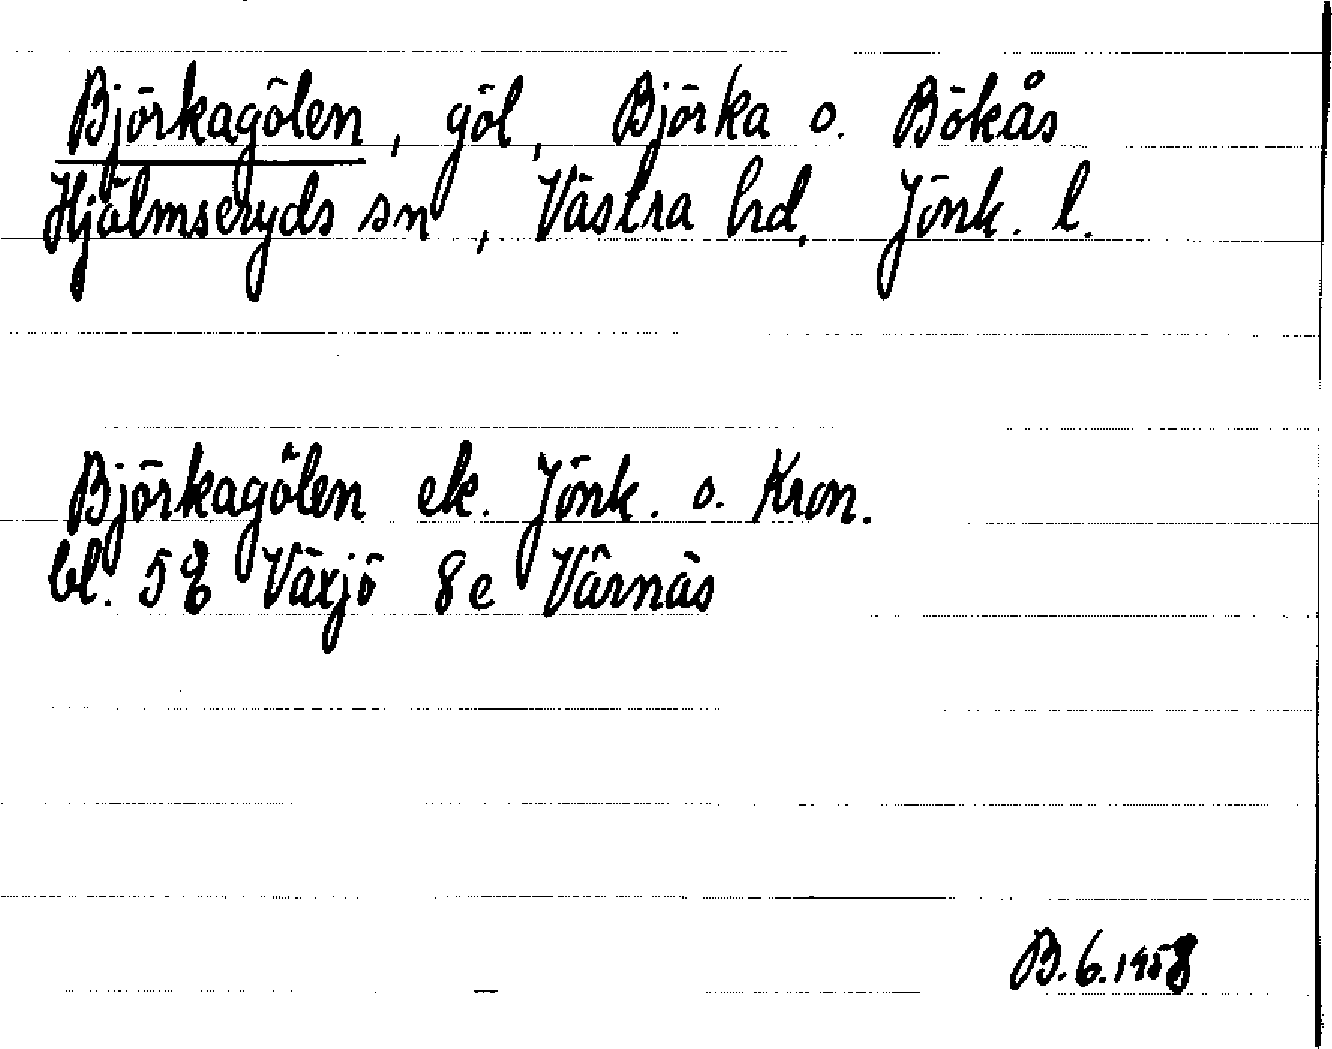 Björkagölen, göl, Björka o. Bökås
Hjälmseryds sn, Västra hd, Jönk. l.
Björkagölen ek. Jönk. o. Kron.
bl. 58 Växjö 8e Värnäs
B.6.1958